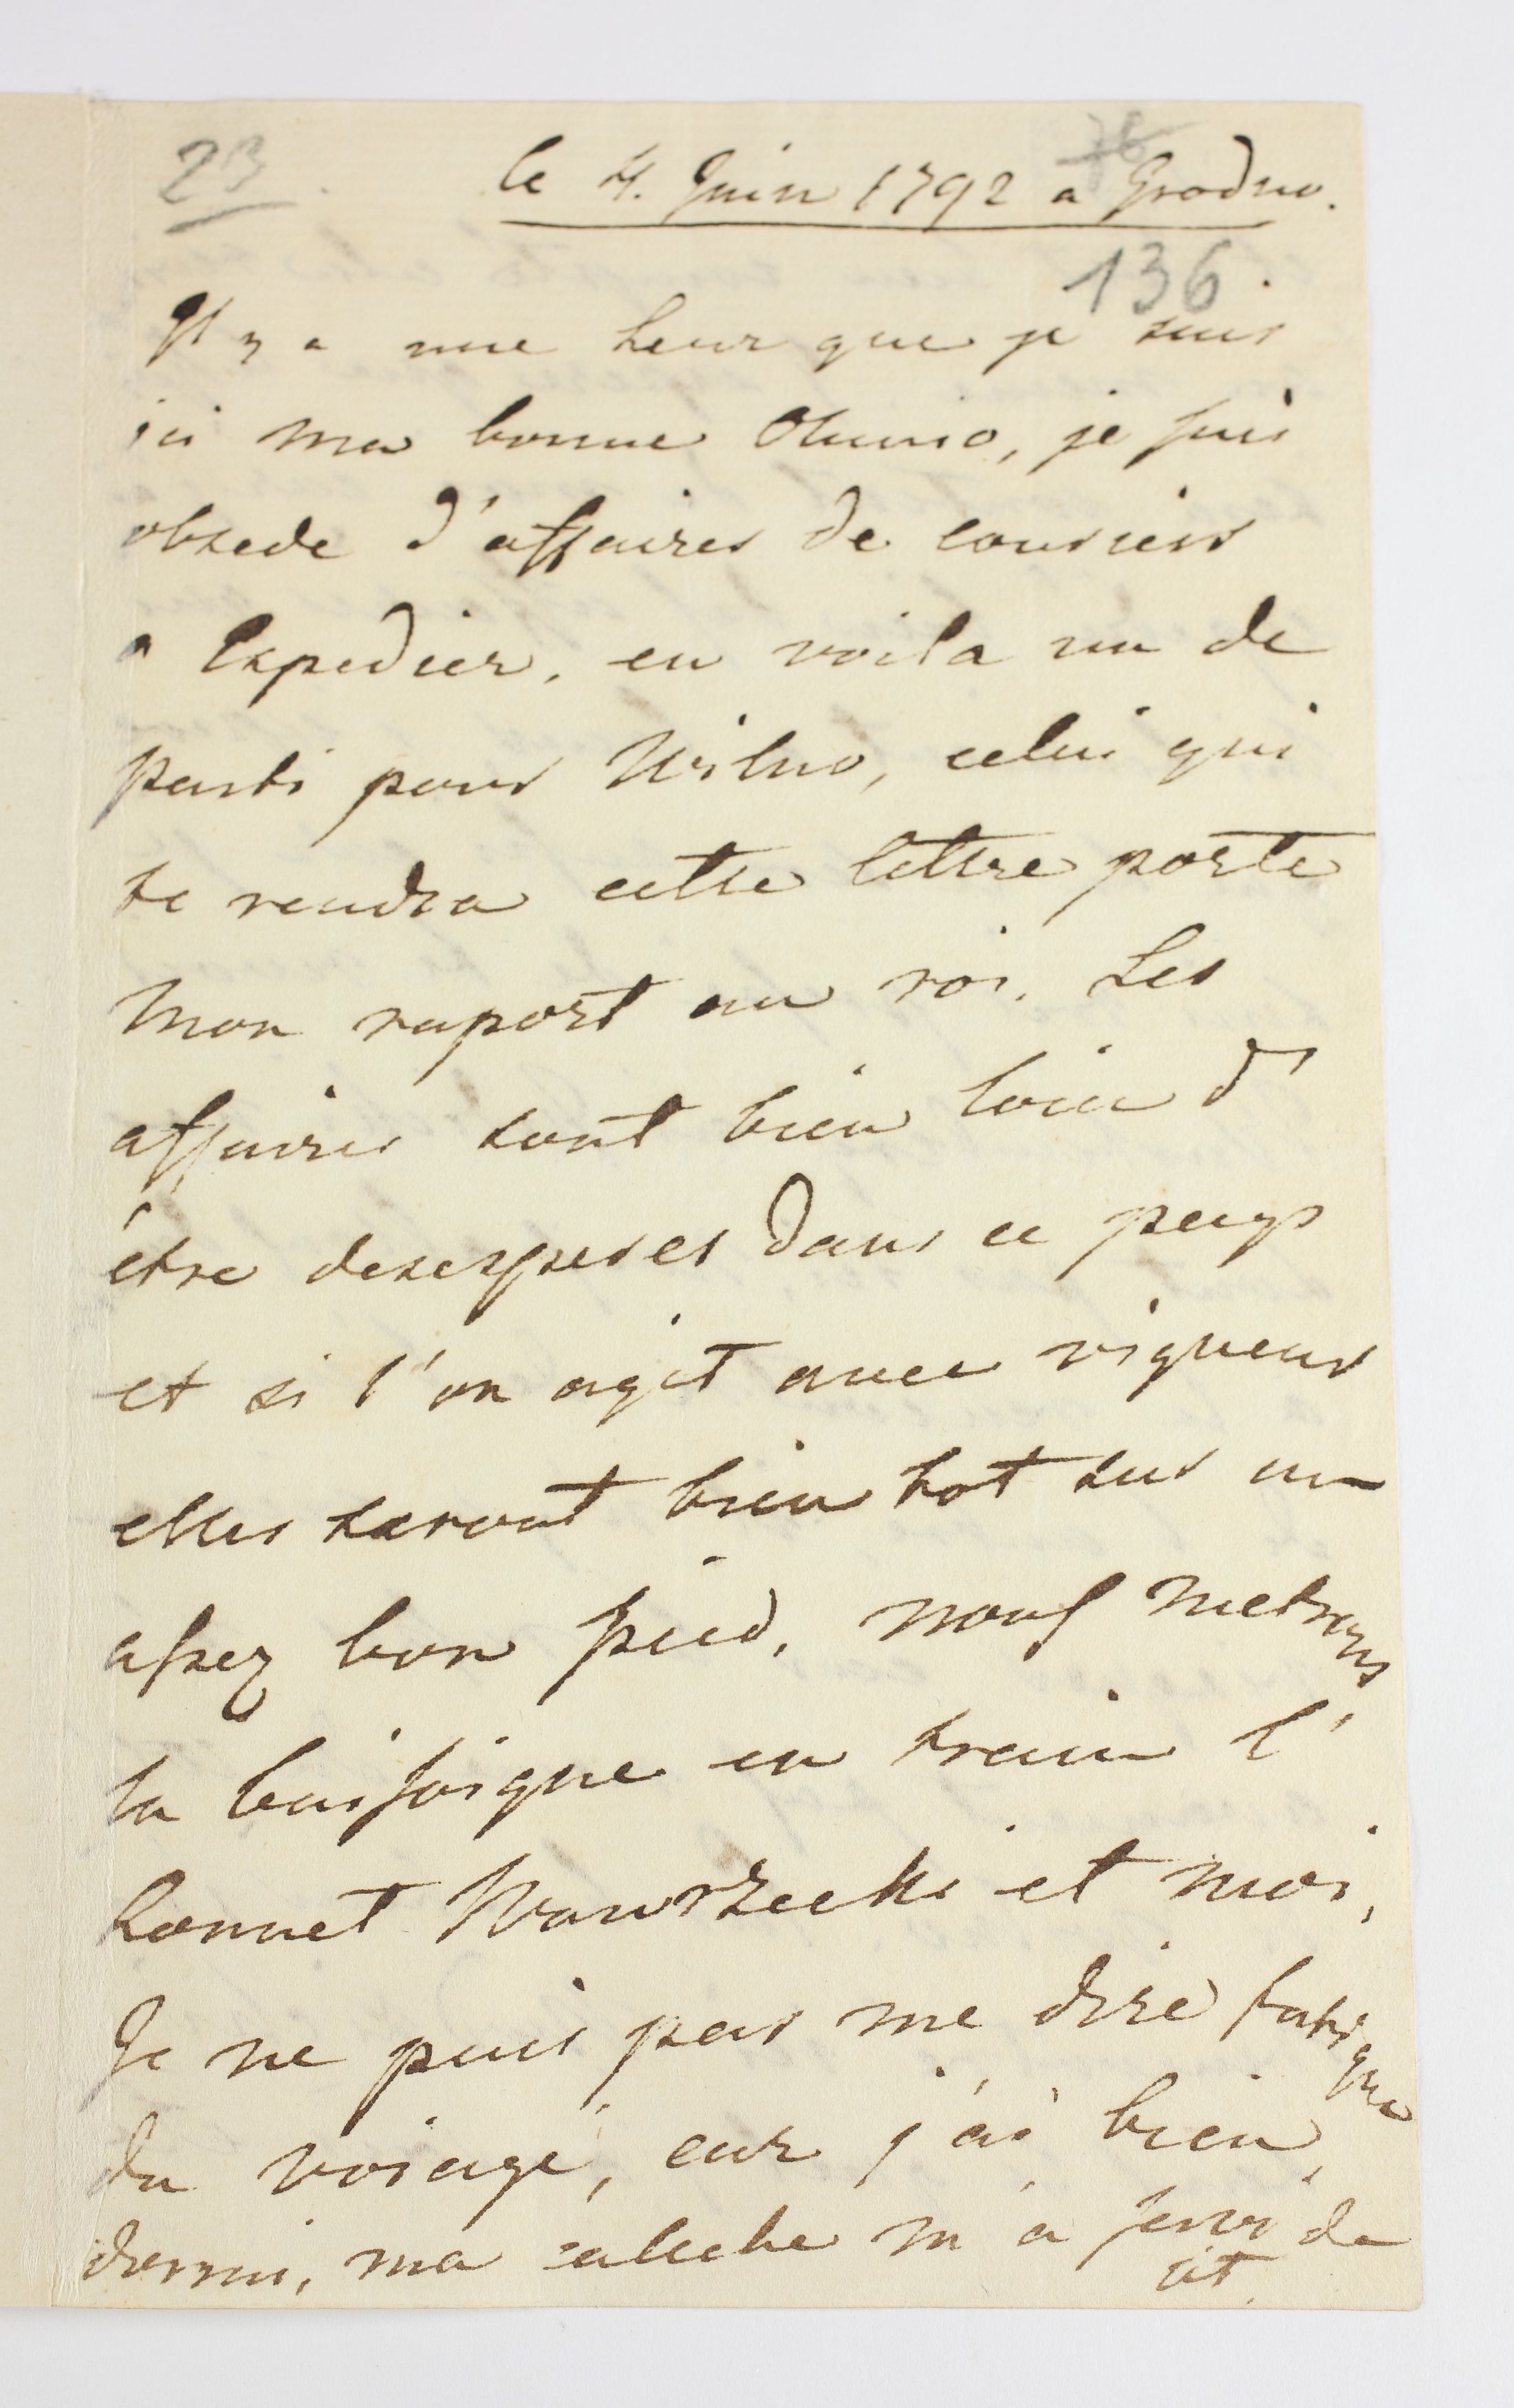 23.
le 4. Juin 1792 a Grodno.
136.
Il y a une heur que je suis
ici ma bonne Olunio, je suis
obsede d'affaires de couriers
a Expedier, en voila un de
parti pour Wilno, celui qui
te rendra cette lettre porte
mon raport au roi. Les
affaires sont bien loin d'
être desesperes dans ce pays
et si l'on agit avec vigueur
elles seront bien tot sur un
assez bon pied, nous metrons
la baissoigne en train l'
honnet Wawrzecki et moi,
Je ne puis pas me dire fatigue
du voiage, car j'ai bien
dormi, ma caleche m'a servi de
lit.